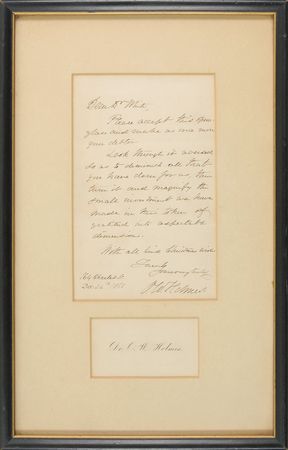 Dear Dr White,
Please accept this opera
glass and make us one more
your debtor.
Look through it reversed
so as to diminish all that
you have done for us, then
turn it and magnify the
small we have
made in this token of
gratitude into respectable
dimensions.
With all kind Christmas wishes
Yours
O W Holmes
Dec 24th
Dr. O. W. Holmes